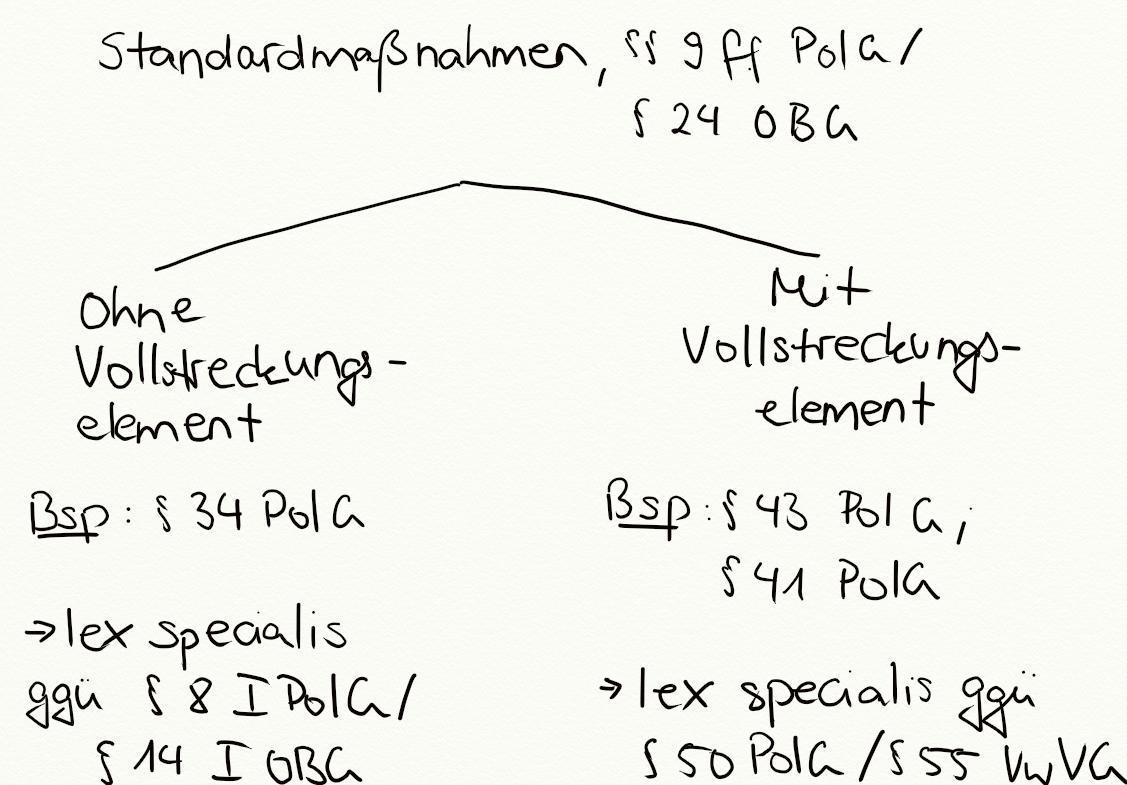 Standardmaßnahmen, §§ 9 ff PolG/
§ 24 OBG
Ohne
Vollstreckungs-
element
Bsp: § 34 PolG
→ lex specialis
ggü § 8 I PolG/
§ 14 I OBG
Mit
Vollstreckungs-
element
Bsp: § 43 PolG,
§ 41 PolG
→ lex specialis ggü
§ 50 PolG / § 55 VwVG